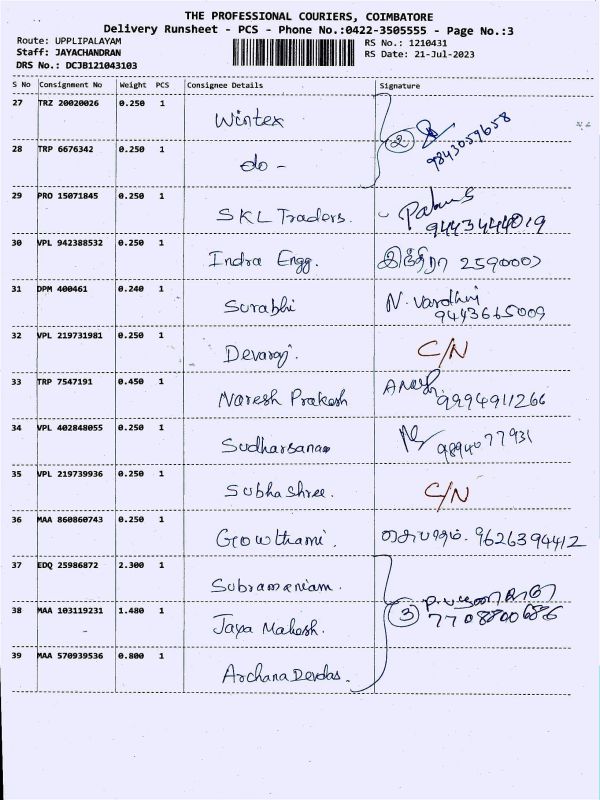 THE PROFESSIONAL COURIERS, COIMBATORE
Delivery Runsheet - PCS - Phone No.:0422-3505555 - Page No.:3
Route: UPPLIPALAYAM
RS No.: 1210431
Staff: JAYACHANDRAN
RS Date: 21-Jul-2023
DRS No.: DCJB121043103
S No Consignment No Weight PCS Consignee Details Signature
27 TRZ 20020026 0.250 1 Wintex
2 9843059658
28 TRP 6676342 0.250 1 do -
29 PRO 15071845 0.250 1 SKL Traders. 9443444019
30 VPL 942388532 0.250 1 Indra Engg. இந்திரா 2590007
31 DPM 400461 0.240 1 Surabhi N. Vardhini
9443665009
32 VPL 219731981 0.250 1 Devaraj. C/N
33 TRP 7547191 0.450 1 Naresh Prakash 9994911266
34 VPL 402848055 0.250 1 Sudharsanam 9894077931
35 VPL 219739936 0.250 1 Subha Shree. C/N
36 MAA 860860743 0.250 1 Gowthami. 9626394412
37 EDQ 25986872 2.300 1 Subramaniam.
38 MAA 103119231 1.480 1 Jaya Mahesh. 3 7708800686
39 MAA 570939536 0.800 1 Archana Devdas.